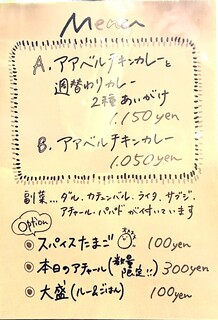 Menu
A. アアベルチキンカレーと
週替わりカレー
2種あいがけ
1.150yen
B. アアベルチキンカレー
1.050yen
副菜...ダル、カチュンバル、ライタ、サブジ、
アチャール・パパドが付いています
Option
◉スパイスたまご 100yen
◉本日のアチャール(数量限定!!) 300yen
◉大盛(ルー&ごはん) 100yen